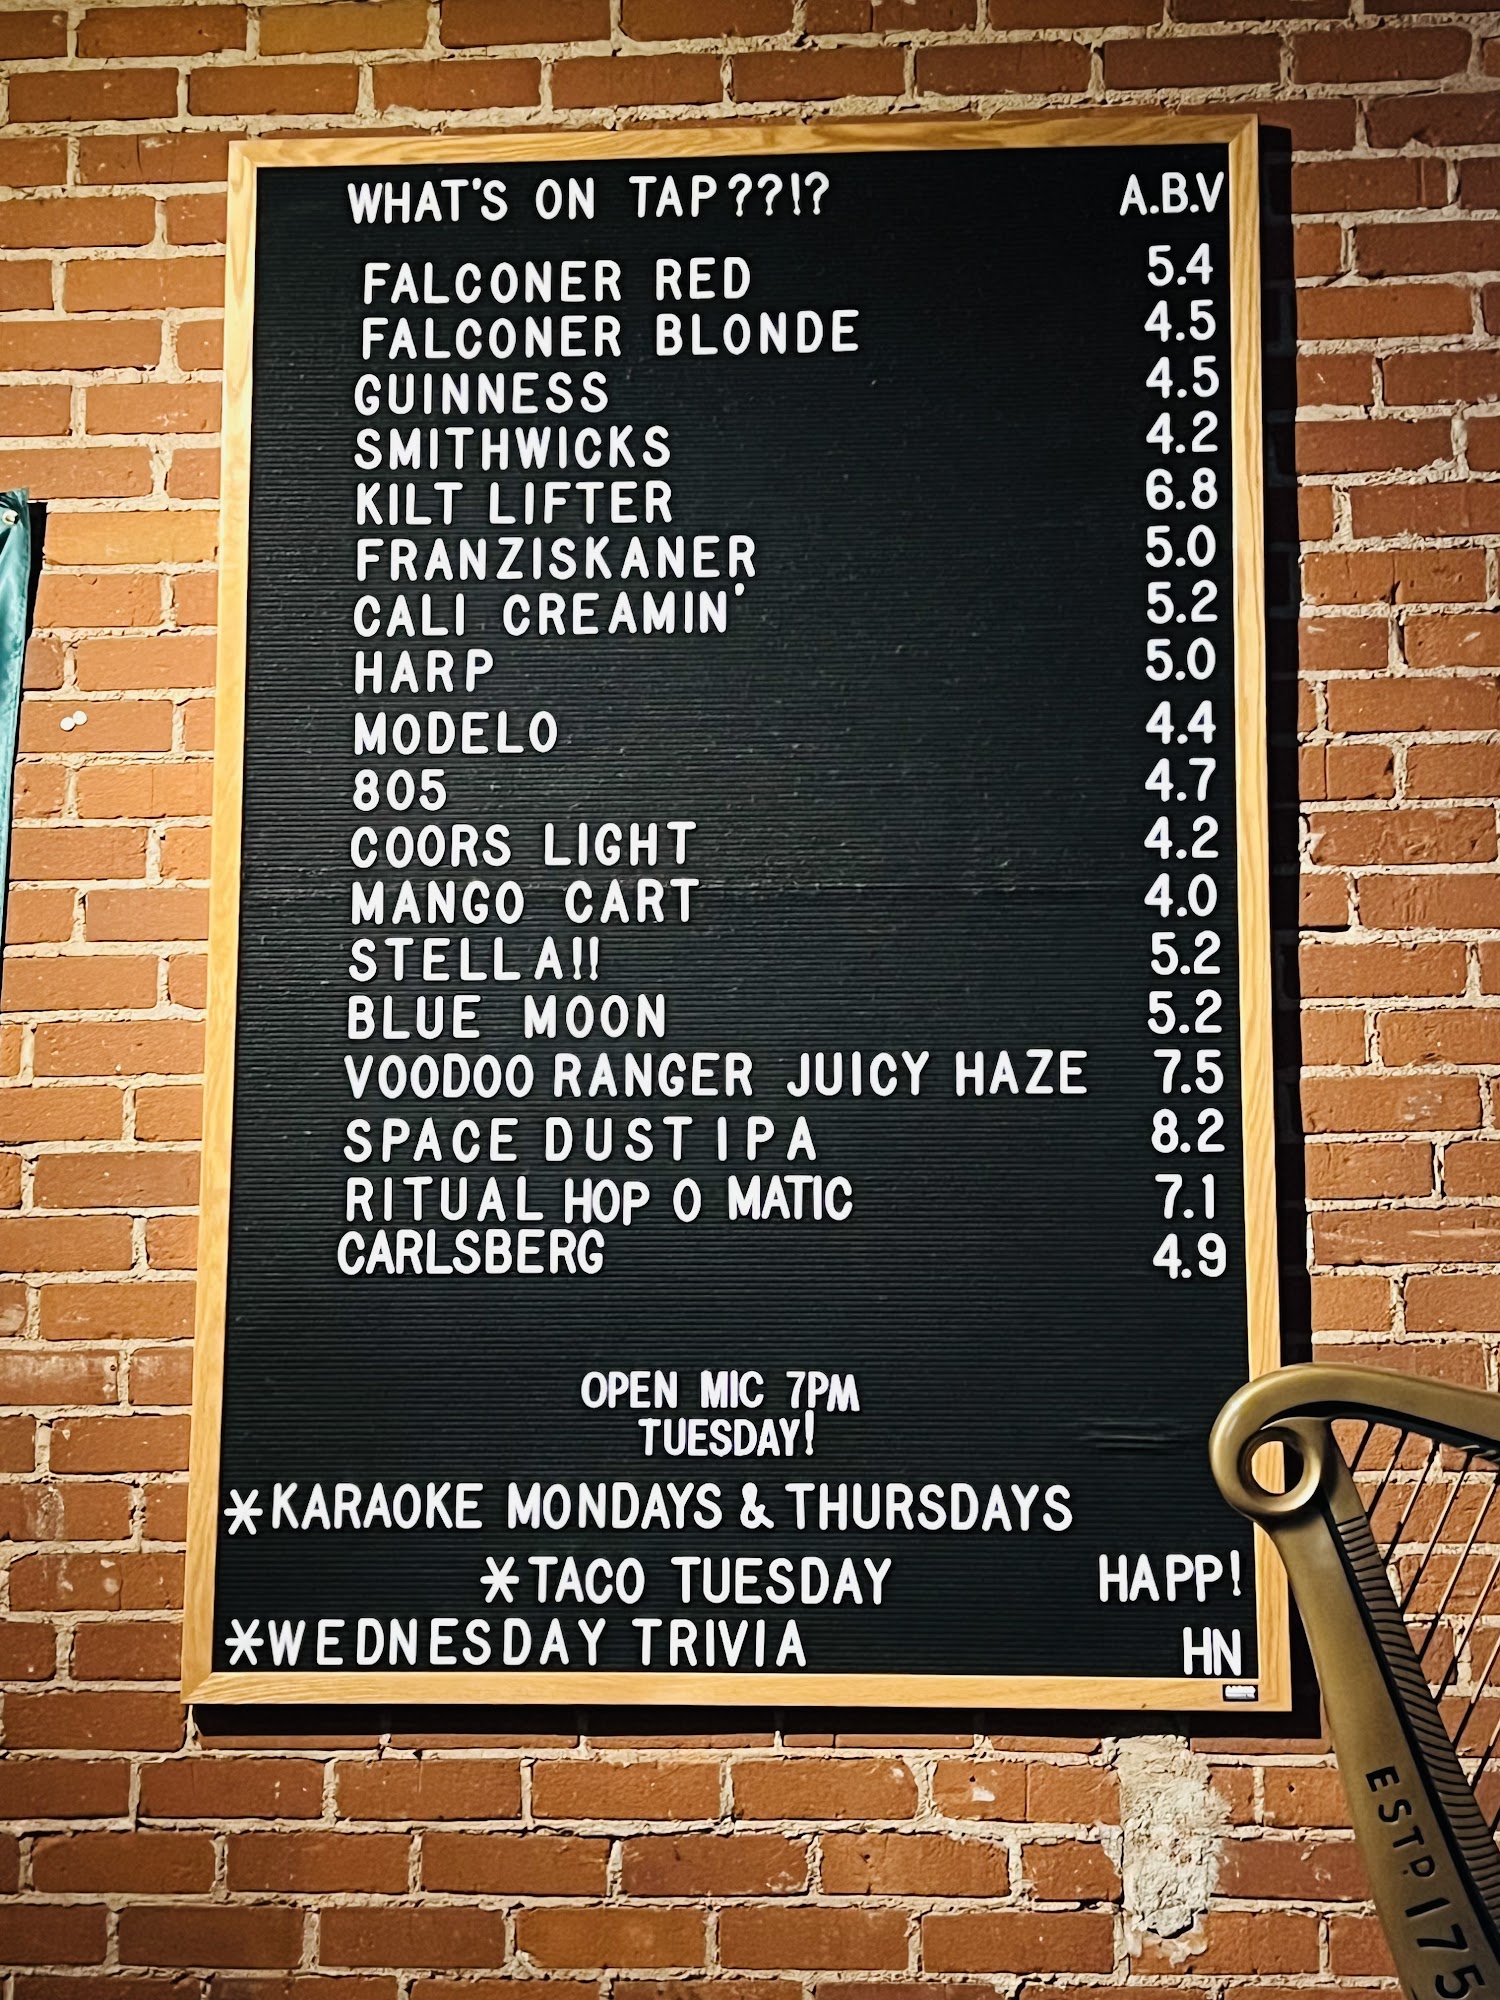 WHAT'S ON TAP??!? A.B.V
FALCONER RED 5.4
FALCONER BLONDE 4.5
GUINNESS 4.5
SMITHWICKS 4.2
KILT LIFTER 6.8
FRANZISKANER 5.0
CALI CREAMIN' 5.2
HARP 5.0
MODELO 4.4
805 4.7
COORS LIGHT 4.2
MANGO CART 4.0
STELLA!! 5.2
BLUE MOON 5.2
VOODOO RANGER JUICY HAZE 7.5
SPACE DUST IPA 8.2
RITUAL HOP O MATIC 7.1
CARLSBERG 4.9
OPEN MIC 7PM
TUESDAY!
*KARAOKE MONDAYS & THURSDAYS
*TACO TUESDAY HAPP!
*WEDNESDAY TRIVIA HN
ESTD 175